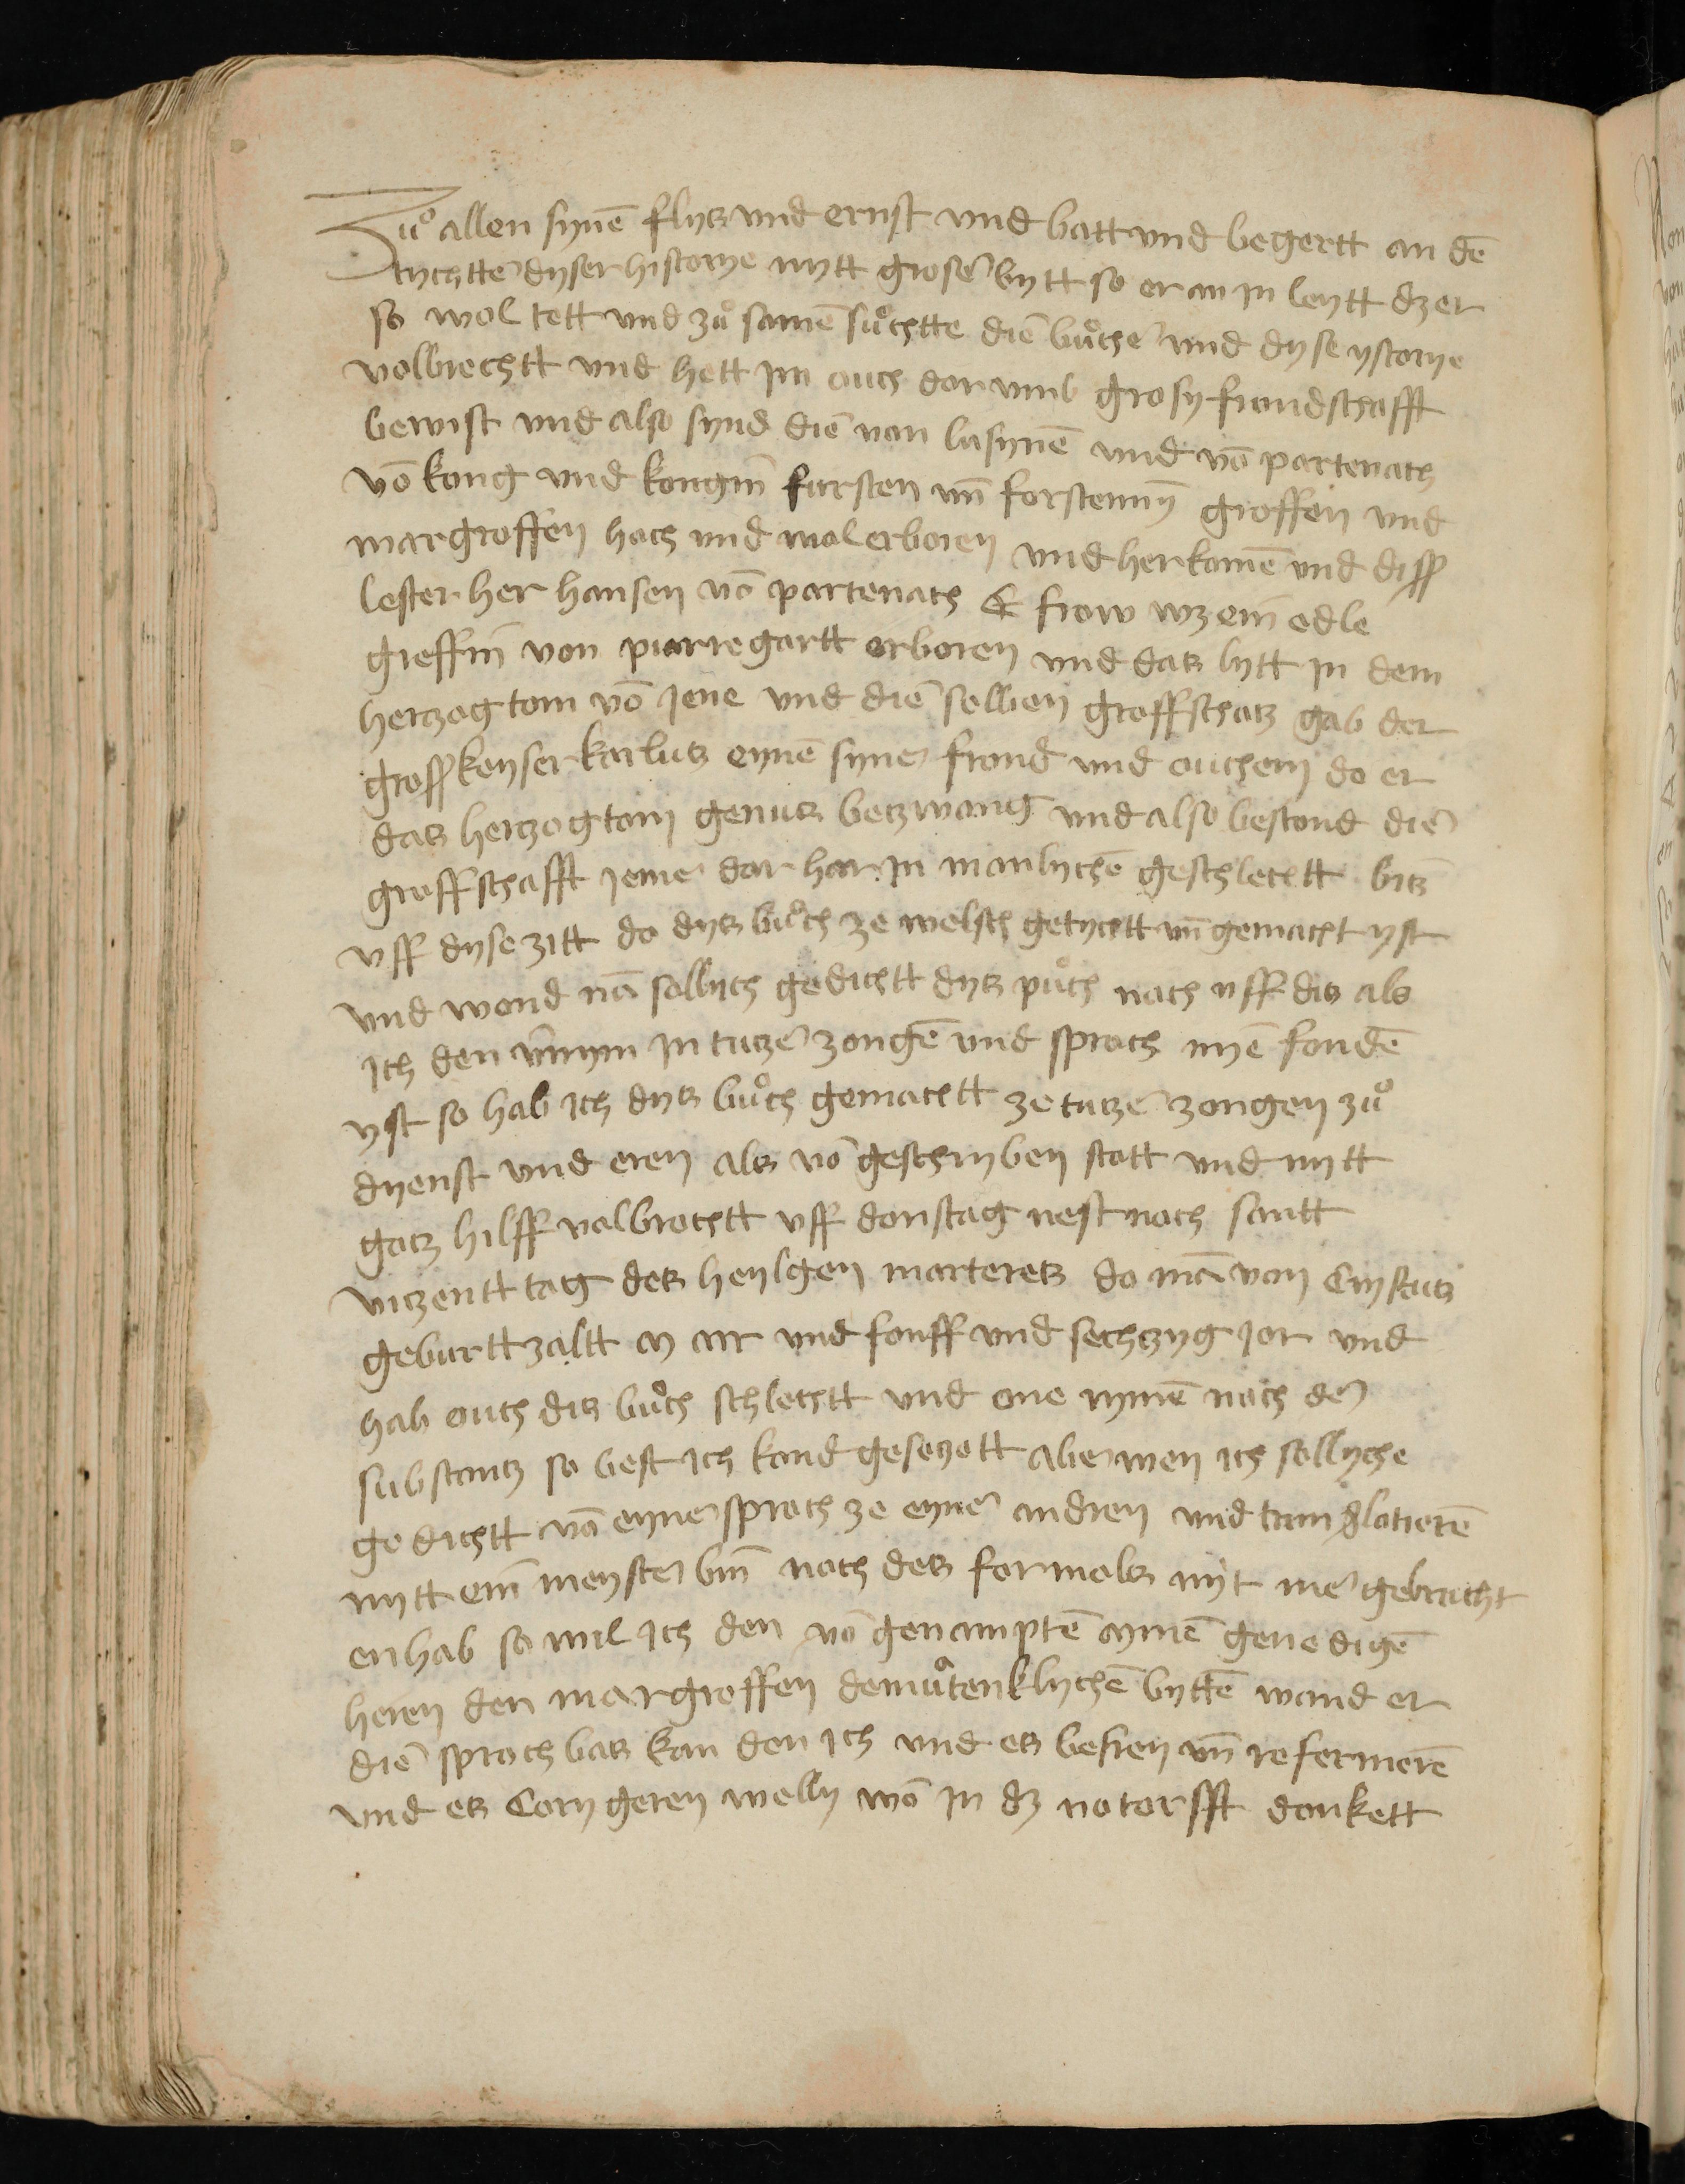 Zuͦ allen synē flyß vnd ernst vnd batt vnd begertt an dē
tychtte͛ dyser historye mytt grose͛ bytt so er an in leytt dz er
so wol tett vnd zuͦ samē suͦchtte die͛ buͦche͛ vnd dyse ystorye
volbrechtt vnd hett im ouch dor vmb grosy frondschafft
bewist vnd also synd die͛ von lusynē vnd vō portenach
vō kong vnd kongin̄ fursten vn̄ forstennyn̄ groffen vnd
margroffen hoch vnd wol erboren vnd herkomē vnd diss
lester her hansen vō portenach & frow wz ein̄ edle
greffin̄ von pierregartt erboren vnd daß lytt in dem
hertzogtom vō Jene vnd die͛ selben groffschatz gab der
gross keyser karluß eynē syne͛ frond vnd ouchem do er
daß hertzogtom genuß betzwong vnd also bestond die͛
groffschafft jeme͛ dor har in manlychē geschlechtt biß
vff dyse zitt do dyß buͦch ze welsch getychtt vn̄ gemacht yst
vnd wond nū sollych gedichtt dyß puͦch noch vff diß als
ich den v̄nym in tutze͛ zongē vnd sproch nyē fondē
yst so hab ich dyß buͦch gemachtt ze tutze͛ zongen zuͦ
dyenst vnd eren als vō geschryben stott vnd mytt
gotz hilff volbrochtt vff donstag nest noch santt
vitzentt tag deß heylgen martereß do mā von Crystuß
geburtt zaltt m cccc vnd fonff vnd sechtzyg jor vnd
hab ouch diß buͦch schlechtt vnd one rymē noch de͛
substantz so best ich kond gesetzett aber wen ich sollyche
gedichtt vō eyne͛ sproch ze eyne͛ andren vnd transzlatierē
mytt ein̄ meyste͛ bin̄ noch deß formols nyt me͛ gebrucht
enhab so wil ich den vō genamptē mynē genedigē
heren den margroffen demuͤtenklychē byttē wand er
die͛ sproch baß kan den ich vnd eß besren vn̄ refermerē
vnd eß Corygeren welly wō in dz notorfft donkett